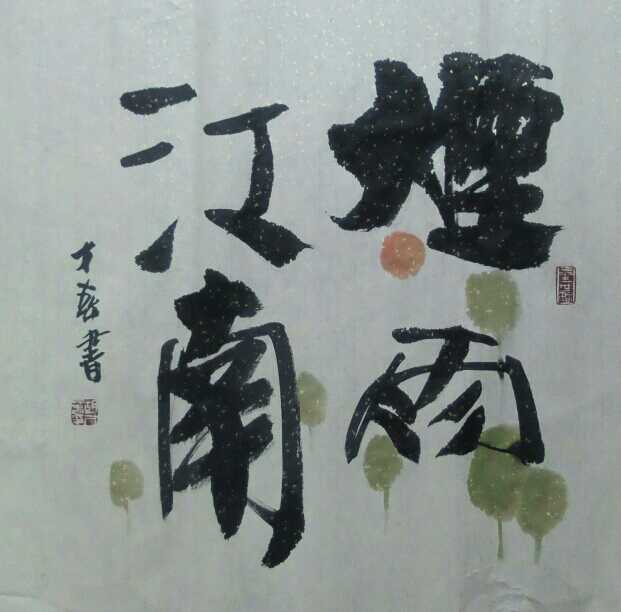 煙雨
江南
才春書